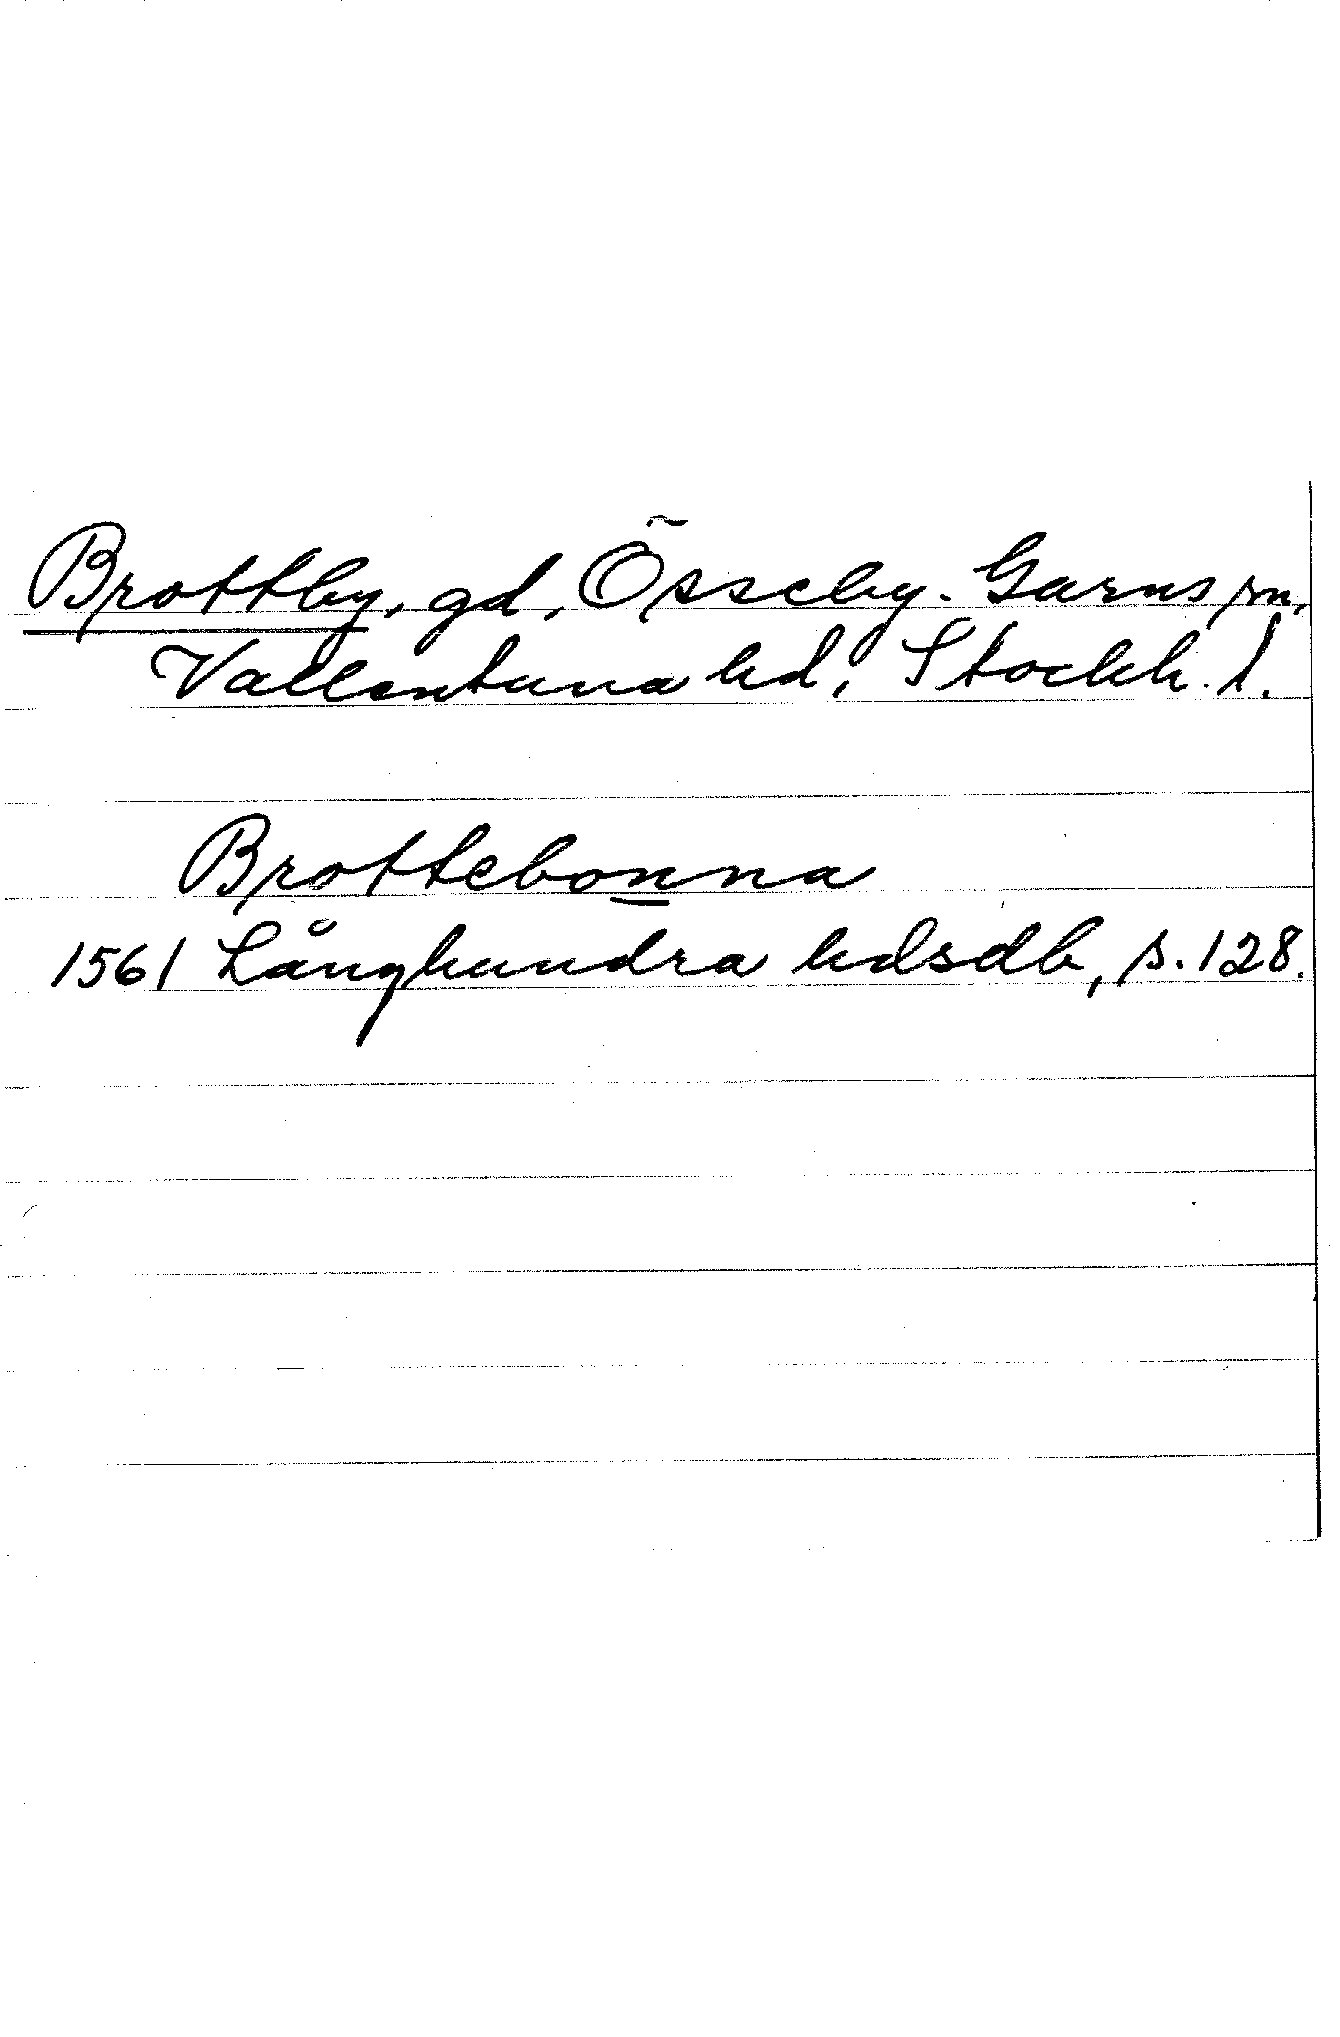 Brottby, gd, Össeby-Garns sn,
Vallentuna hd, Stockh. l.
Brottebonna
1561 Långhundra hdsdb, s. 128.